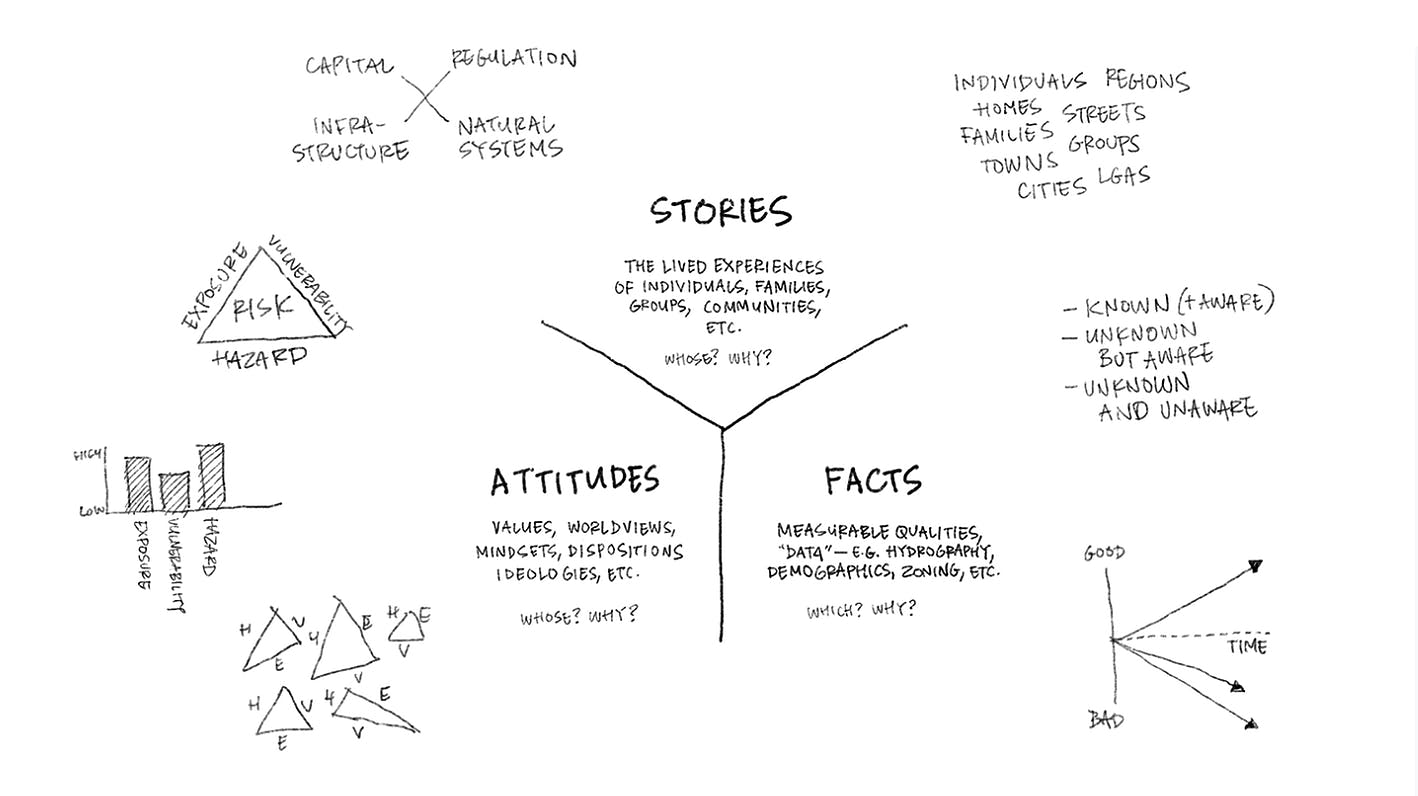 CAPITAL
REGULATION
INFRA-
STRUCTURE
NATURAL
SYSTEMS
INDIVIDUALS REGIONS
HOMES STREETS
FAMILIES GROUPS
TOWNS
CITIES LGAS
STORIES
THE LIVED EXPERIENCES
OF INDIVIDUALS, FAMILIES,
GROUPS, COMMUNITIES,
ETC.
WHOSE? WHY?
EXPOSURE
VULNERABILITY
RISK
HAZARD
- KNOWN (+ AWARE)
- UNKNOWN
BUT AWARE
- UNKNOWN
AND UNAWARE
HIGH
LOW
EXPOSURE
VULNERABILITY
HAZARD
ATTITUDES
VALUES, WORLDVIEWS,
MINDSETS, DISPOSITIONS
IDEOLOGIES, ETC.
WHOSE? WHY?
FACTS
MEASURABLE QUALITIES,
"DATA" — E.G. HYDROGRAPHY,
DEMOGRAPHICS, ZONING, ETC.
WHICH? WHY?
H V
E
H E
V
H E
V
H V
E
H E
V
GOOD
TIME
BAD